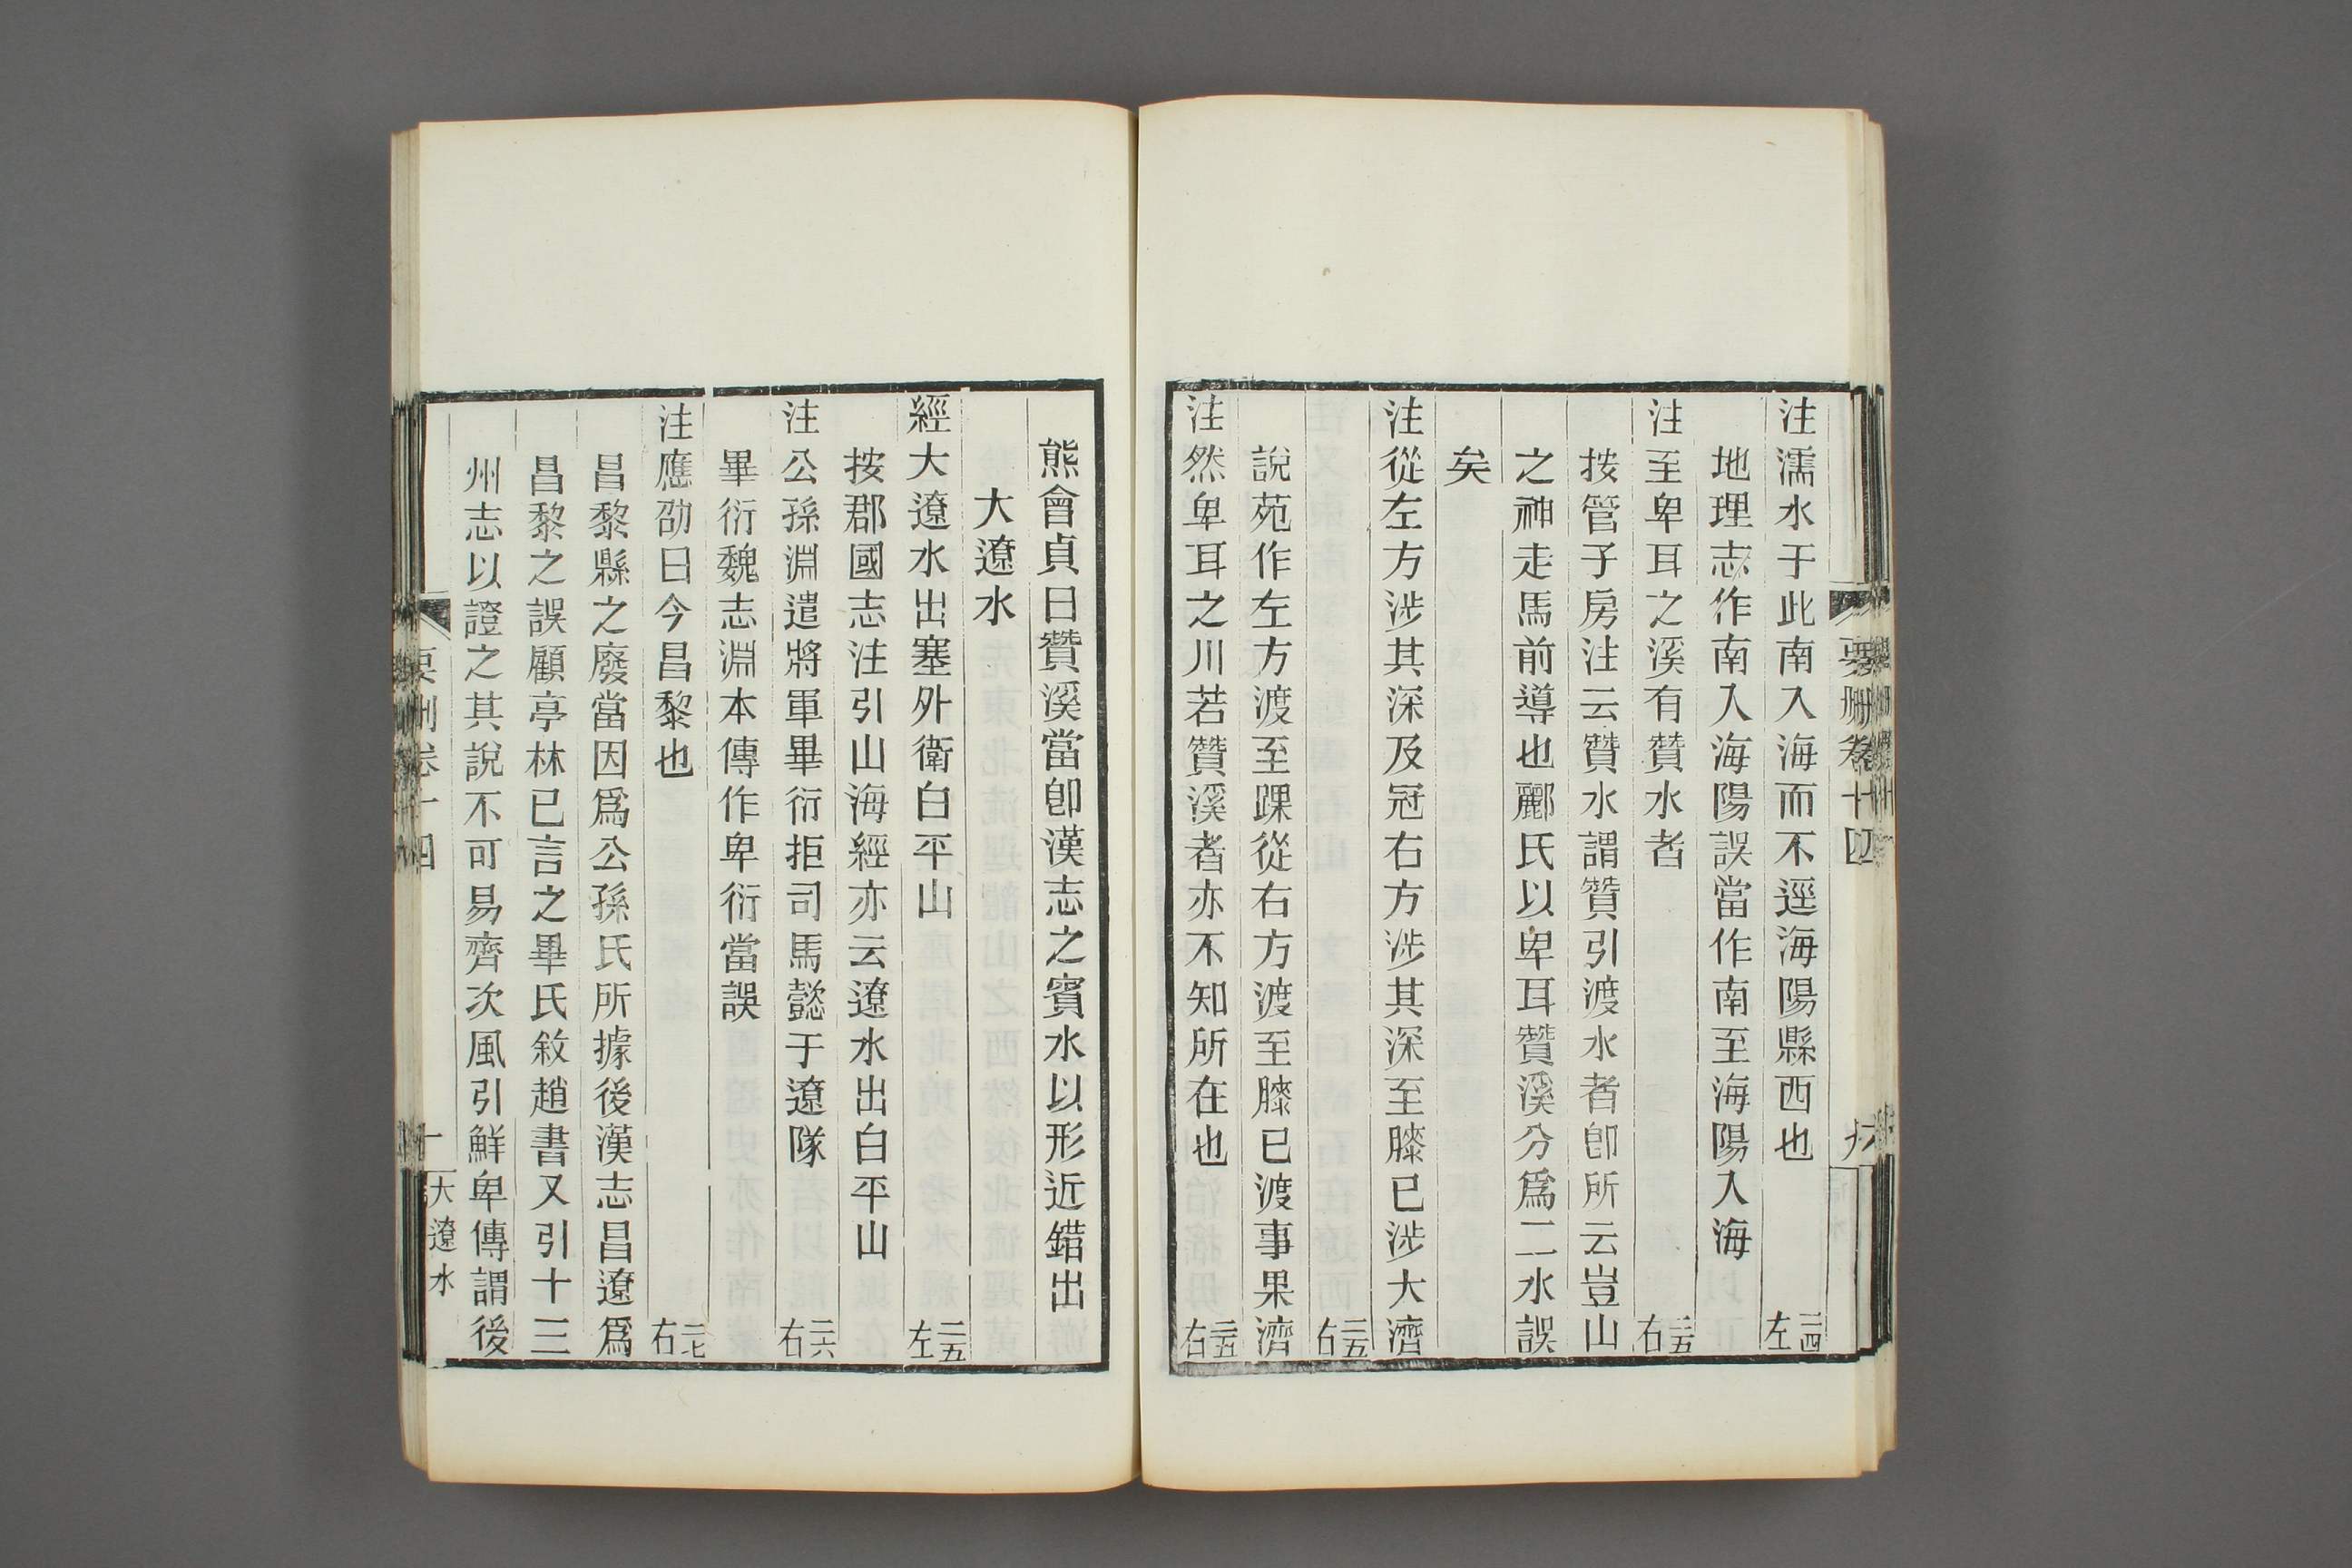 注濡水于此南入海而不逕海陽縣西也 二四左
地理志作南入海陽誤當作南至海陽入海
注至卑耳之溪有贊水者 二五右
按管子房注云贊水謂贊引渡水者卽所云豈山
之神走馬前導也酈氏以卑耳贊溪分爲二水誤
矣
注從左方涉其深及冠右方涉其深至膝已涉大濟
二五右
說苑作左方渡至踝從右方渡至膝已渡事果濟
注然卑耳之川若贊溪者亦不知所在也 二五右
要删卷十四
熊會貞曰贊溪當卽漢志之賓水以形近錯出
大遼水
經大遼水出塞外衛白平山 二五左
按郡國志注引山海經亦云遼水出白平山
注公孫淵遣將軍畢衍拒司馬懿于遼隊 二六右
畢衍魏志淵本傳作卑衍當誤
注應劭曰今昌黎也 二七右
昌黎縣之廢當因爲公孫氏所據後漢志昌遼爲
昌黎之誤顧亭林已言之畢氏敘趙書又引十三
州志以證之其說不可易齊次風引鮮卑傳謂後
要删卷十四 大遼水